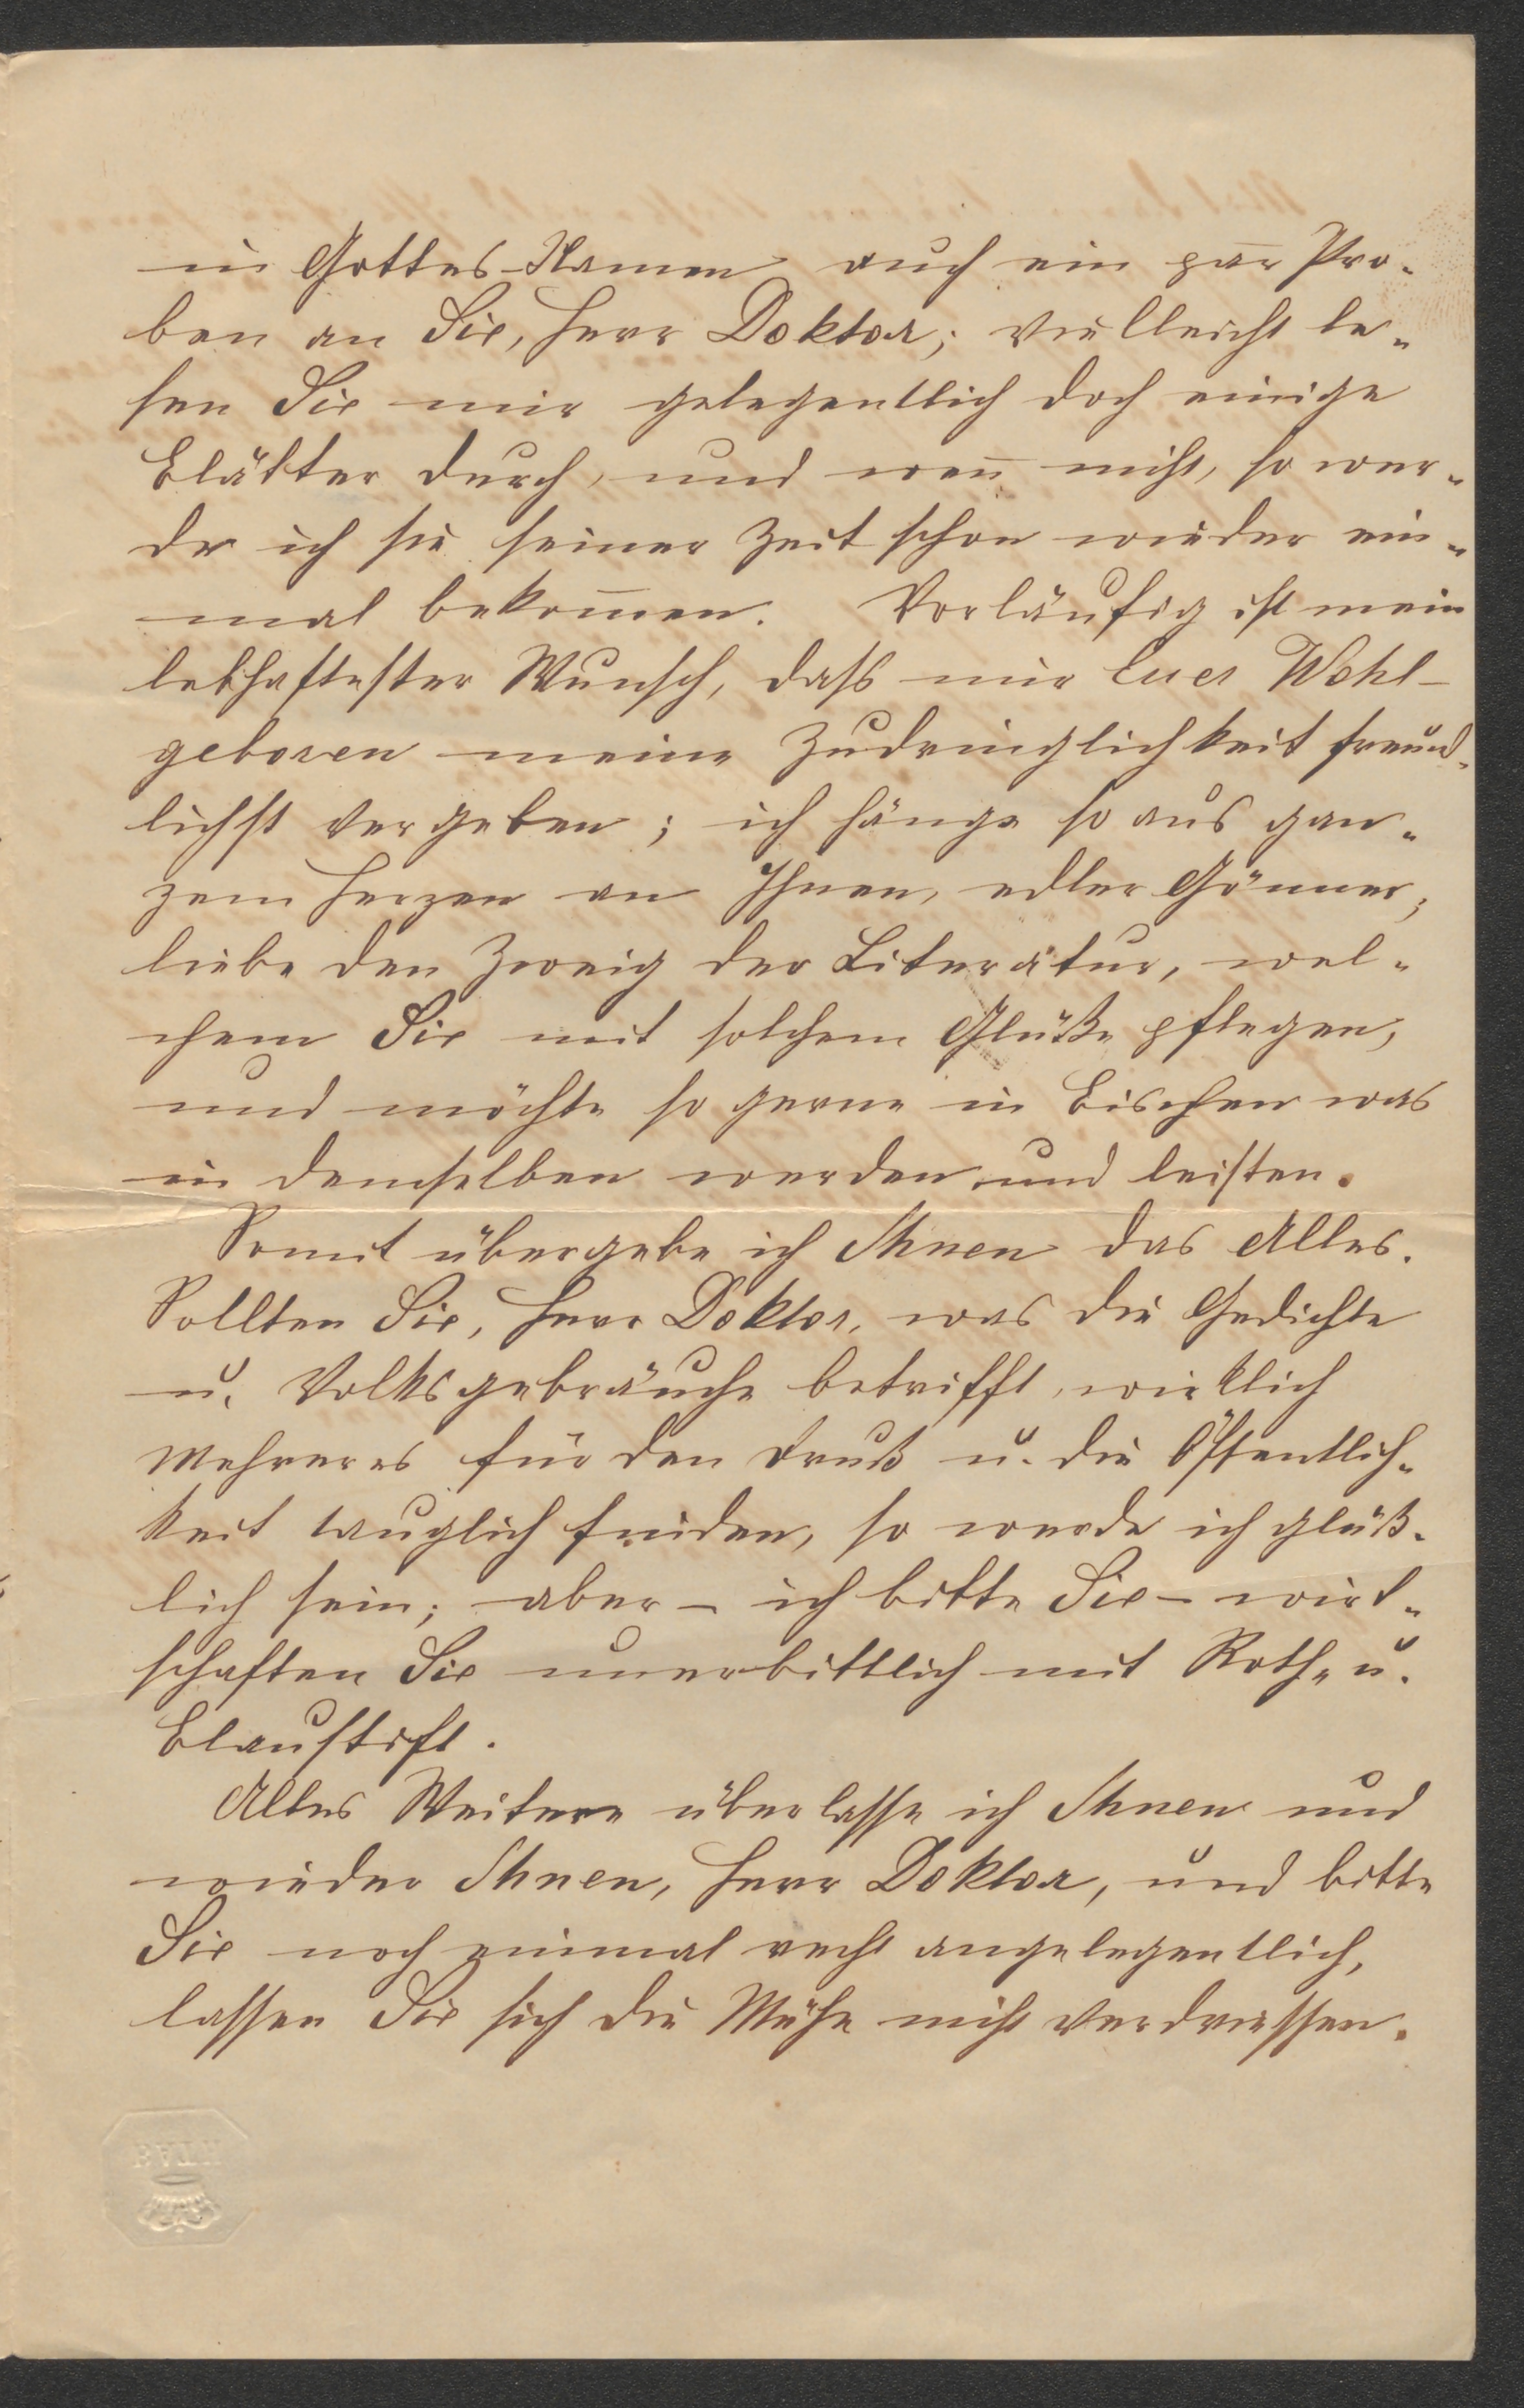 in Gottes-Namen auch ein par Pro-
ben an Sie, Herr Doktor; vielleicht le-
sen Sie mir gelegentlich doch einige
Blätter durch, und wen̄ nicht, so wer-
de ich sie seiner Zeit schon wieder ein-
mal bekom̄en. Vorläufig ist mein
lebhaftester Wunsch, dass mir Euer Wohl-
geboren meine Zudringlichkeit freund-
lichst vergeben; ich hänge so aus gan-
zem Herzen an Ihnen, edler Gönner;
liebe den Zweig der Literatur, wel-
chem Sie mit solchem Glücke pflegen,
und möchte so gerne in Bischen was
in demselben werden und leisten.
Somit übergebe ich Ihnen das Alles.
Sollten Sie, Herr Doktor, was die Gedichte
u. Volksgebräuche betrifft, wirklich
Mehreres für den Druck u. die Öffentlich-
keit tauglich finden, so werde ich glück-
lich sein; aber – ich bitte Sie – wirt-
schaften Sie unerbittlich mit Roth- u.
Blaustift.
Alles Weitere überlasse ich Ihnen und
wieder Ihnen, Herr Doktor, und bitte
Sie noch einmal recht angelegentlich,
lassen Sie sich die Mühe nicht verdriessen.
BATH